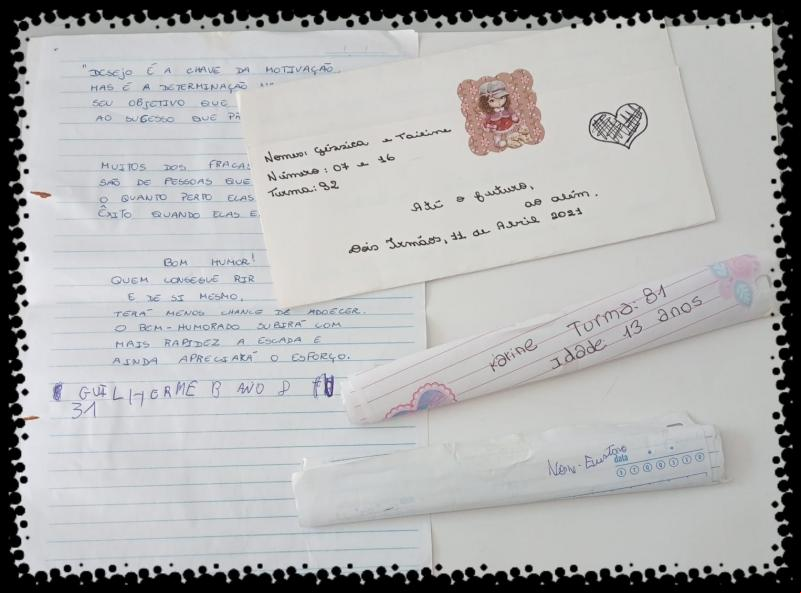 "DESEJO É A CHAVE DA MOTIVAÇÃO,
MAS É A DETERMINAÇÃO
SEU OBJETIVO QUE
AO SUCESSO QUE
MUITOS DOS
SÃO DE PESSOAS QUE
O QUANTO PERTO ELAS
ÊXITO QUANDO ELAS
BOM HUMOR!
QUEM CONSEGUE RIR
E DE SI MESMO,
TERÁ MENOS CHANCE DE ADOECER.
O BEM-HUMORADO SUBIRÁ COM
MAIS RAPIDEZ A ESCADA E
AINDA APRECIARÁ O ESFORÇO.
GUILHERME B ANO 8
31
Nomes: Géssica e Taieine
Número: 07 e 16
Turma: 82
Até o futuro,
ao além.
Dois Irmãos, 11 de Abril 2021
Karine Turma: 81
Idade 13 anos
data